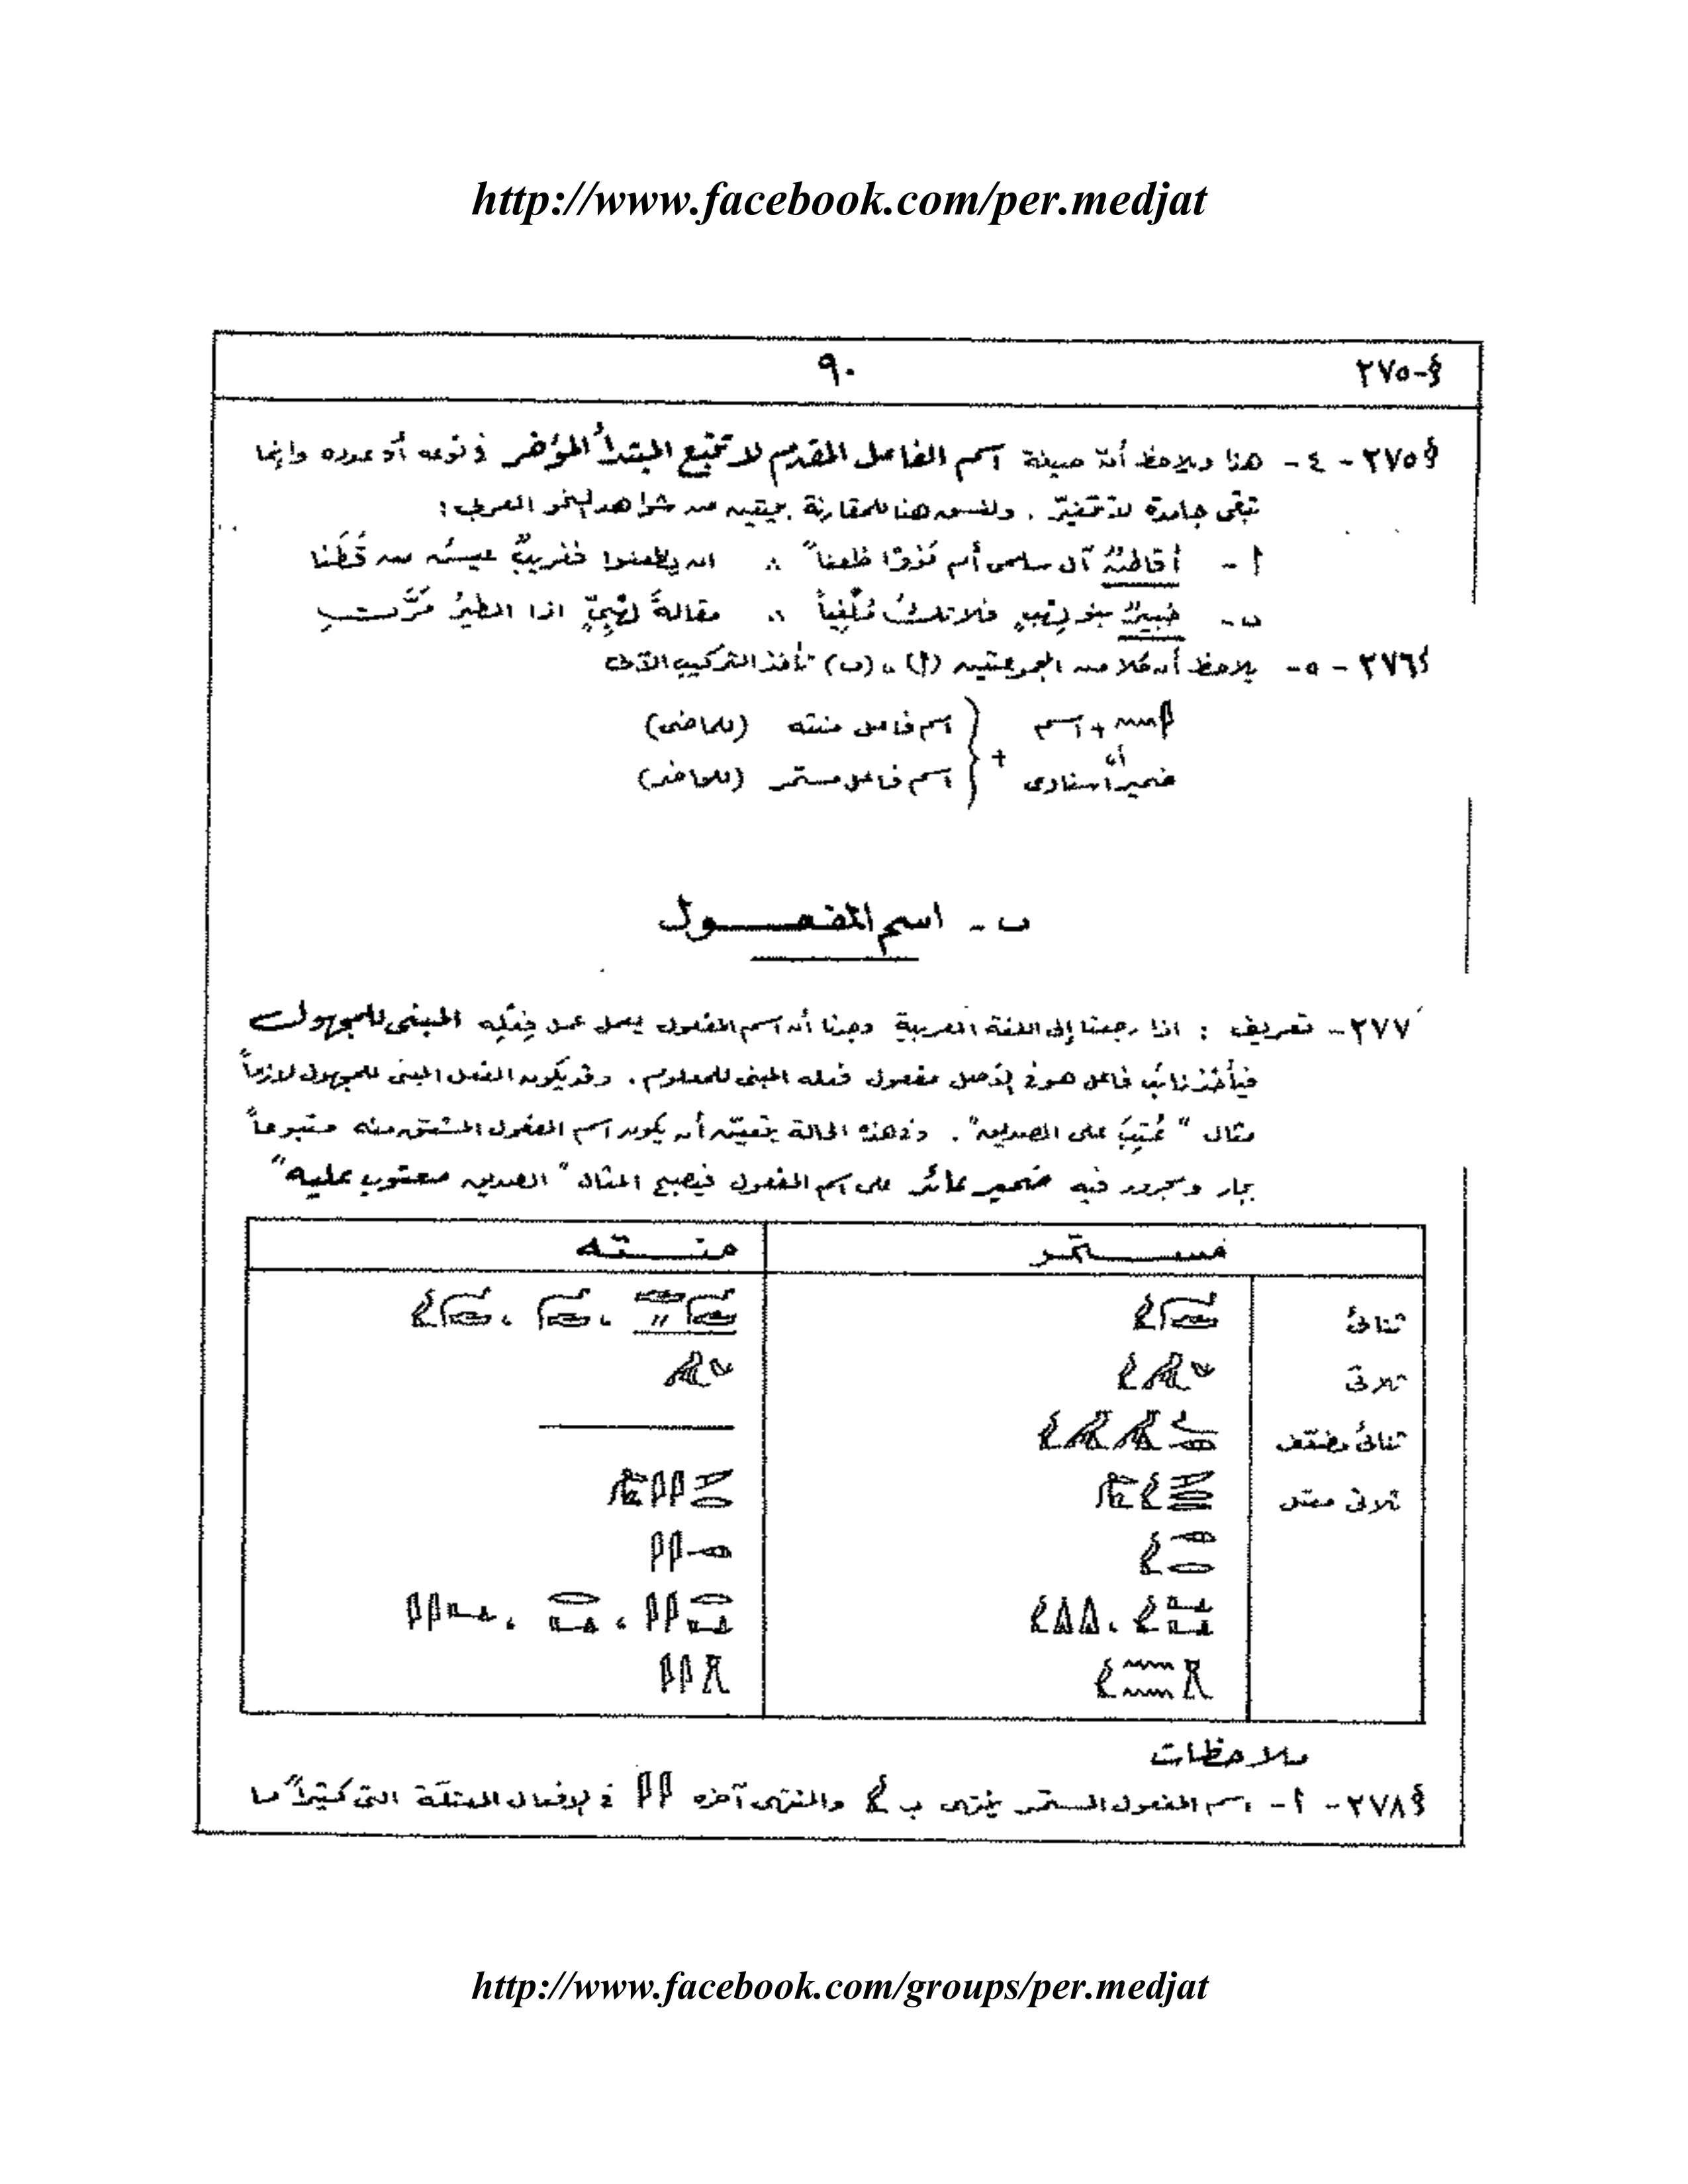 http://www.facebook.com/per.medjat
§-٢٧٥
٩٠
§٢٧٥ - ٤ - هذا ويلاحظ أن صيغة اسم الفاعل المقدم لا تتبع المبتدأ المؤخر في نوعه أو عدده وإنما
تبقى جامدة لا تتغيّر . ولنسق هنا للمقارنة بيتين من شواهد النحو العربى :
أ - أقاطنٌ آل سلمى أم نووْا ظعناً ∴ ان يظعنوا فغريبٌ عيشُ من قَطَنا
ب - خبيرٌ بنو لِهْبٍ فلا تكُ مُلْغِياً ∴ مقالةَ لِهْبِىٍّ اذا الطيرُ مَرَّتِ
§٢٧٦ - ٥ - يلاحظ أن كلا من المجموعتين (أ) ، (ب) تأخذ التركيب الآتى
+ اسم } اسم فاعل منته (للماضى)
أو +
ضمير اسنادى } اسم فاعل مستمر (للحاضر)
ب - اسم المفعول
٢٧٧ - تعريف : اذا رجعنا إلى اللغة العربية وجدنا أن اسم المفعول يعمل عمل فِعْلِه المبنى للمجهول
فيأخذ نائب فاعل هو في الأصل مفعول فعله المبنى للمعلوم . وقد يكون الفعل المبنى للمجهول لازماً
مثال " عُتِبَ على الصديق " . وفي هذه الحالة يتعيّن أن يكون اسم المفعول المشتق منه متبوعاً
بجار ومجرور فيه ضمير عائد على اسم المفعول فيصبح المثال " الصديق معتوب عليه "
مستمر
منته
ثنائى
ثلاثى
ثنائى مضعّف
ثلاثى معتل
ملاحظات
§٢٧٨ - أ - اسم المفعول المستمر ينتهى ب والمنتهى آخره في الافعال المعتلّة التى كثيراً ما
http://www.facebook.com/groups/per.medjat